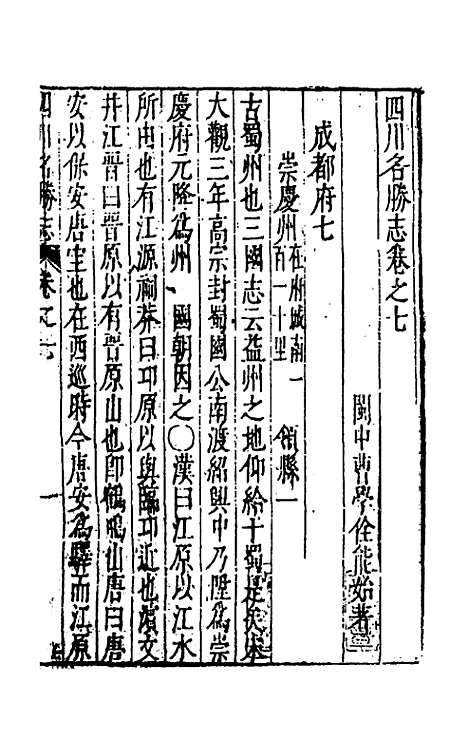 四川名勝志卷之七
閩中曹學佺能始著
成都府七
崇慶州在府城南一百一十里 領縣一
古蜀州也三國志云益州之地仰給于蜀是矣宋
大觀三年高宗封蜀國公南渡紹興中乃陞為崇
慶府元降為州 國朝因之〇漢曰江原以江水
所由也有江源祠莽曰邛原以與臨邛近也濵文
井江晉曰晉原以有晉原山也即鶴鳴山唐曰唐
安以保安唐室也在西巡時今唐安為驛而江原
四川名勝志 卷之七 一